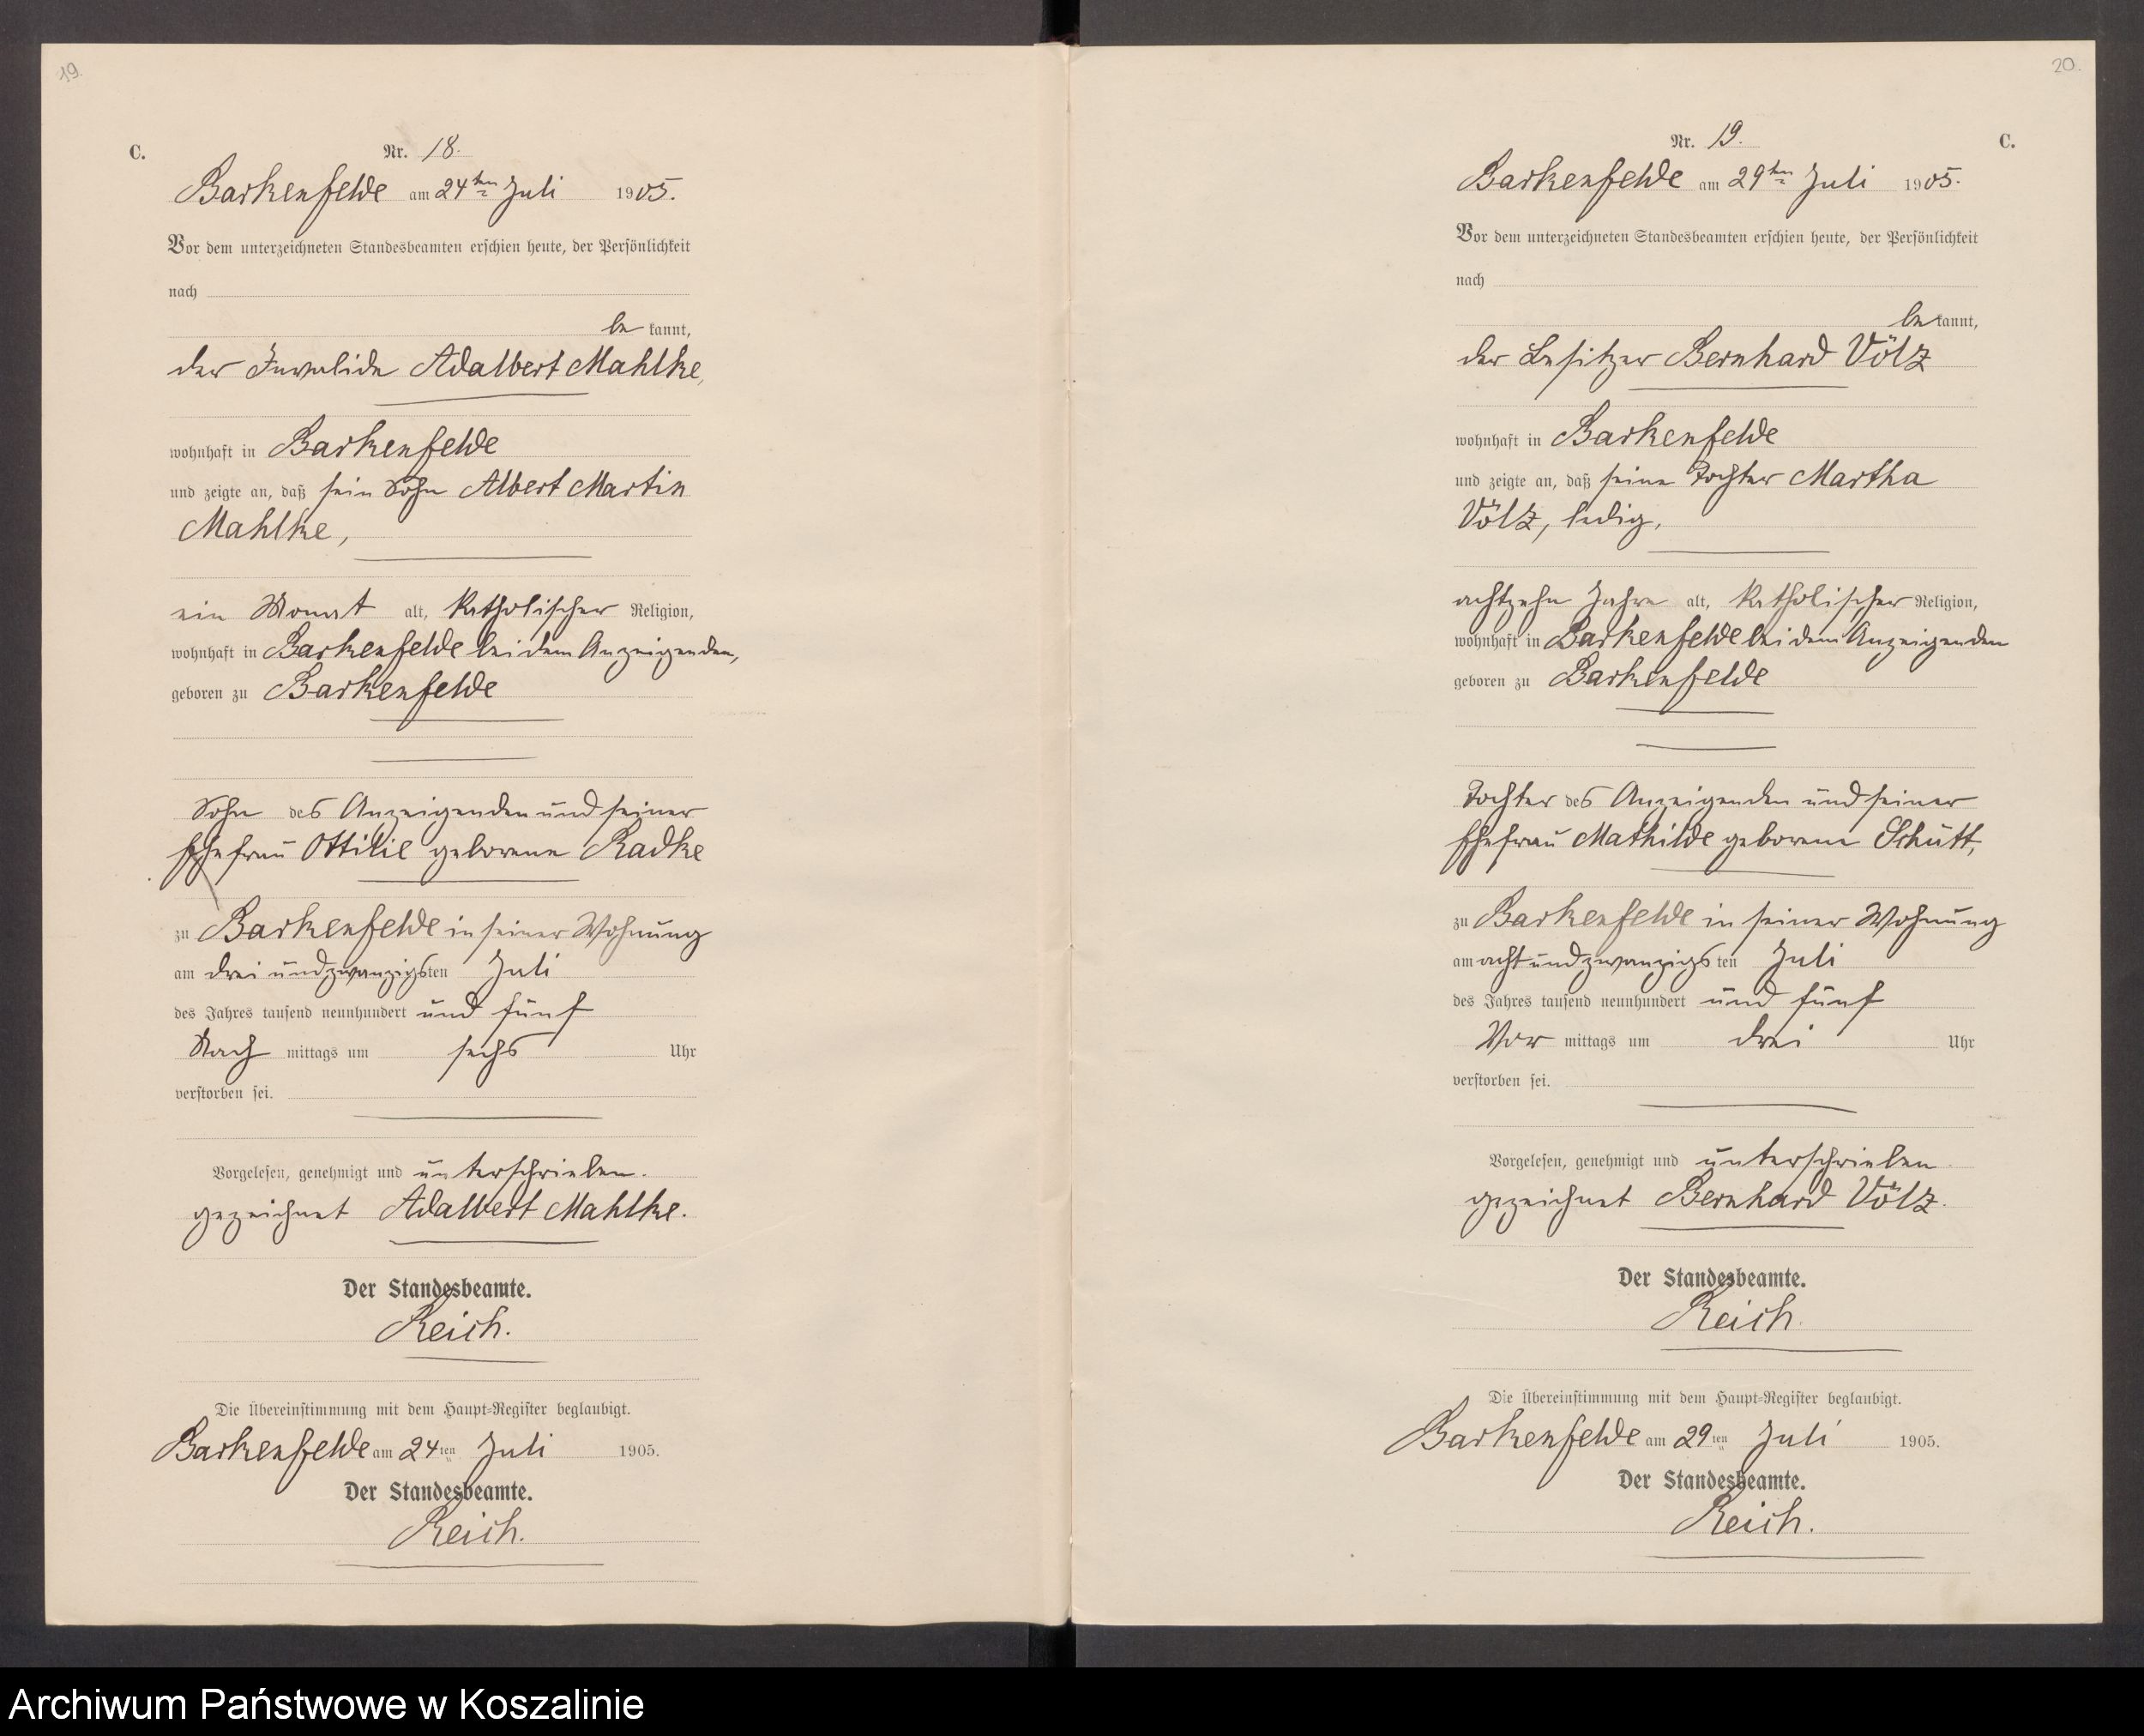 19.
C.
Nr. 18.
Barkenfelde am 24ten Juli 1905.
Vor dem unterzeichneten Standesbeamten erschien heute, der Persönlichkeit
nach
be kannt,
der Invalide Adalbert Mahlke,
wohnhaft in Barkenfelde
und zeigte an, daß sein Sohn Albert Martin
Mahlke,
ein Monat alt, katholischer Religion,
wohnhaft in Barkenfelde bei dem Anzeigenden,
geboren zu Barkenfelde
Sohn des Anzeigenden und seiner
Ehefrau Ottilie geborene Radke
zu Barkenfelde in seiner Wohnung
am drei und zwanzigsten Juli
des Jahres tausend neunhundert und fünf
Nach mittags um sechs Uhr
verstorben sei.
Vorgelesen, genehmigt und unterschrieben.
gezeichnet Adalbert Mahlke.
Der Standesbeamte.
Reich.
Die Übereinstimmung mit dem Haupt-Register beglaubigt.
Barkenfelde am 24ten Juli 1905.
Der Standesbeamte.
Reich.
20.
Nr. 19.
C.
Barkenfelde am 29ten Juli 1905.
Vor dem unterzeichneten Standesbeamten erschien heute, der Persönlichkeit
nach
be kannt,
der Besitzer Bernhard Völz
wohnhaft in Barkenfelde
und zeigte an, daß seine Tochter Martha
Völz, ledig,
achtzehn Jahre alt, katholischer Religion,
wohnhaft in Barkenfelde bei dem Anzeigenden
geboren zu Barkenfelde
Tochter des Anzeigenden und seiner
Ehefrau Mathilde geborene Schütt,
zu Barkenfelde in seiner Wohnung
am acht und zwanzigsten Juli
des Jahres tausend neunhundert und fünf
Vor mittags um drei Uhr
verstorben sei.
Vorgelesen, genehmigt und unterschrieben
gezeichnet Bernhard Völz.
Der Standesbeamte.
Reich.
Die Übereinstimmung mit dem Haupt-Register beglaubigt.
Barkenfelde am 29ten Juli 1905.
Der Standesbeamte.
Reich.
Archiwum Państwowe w Koszalinie